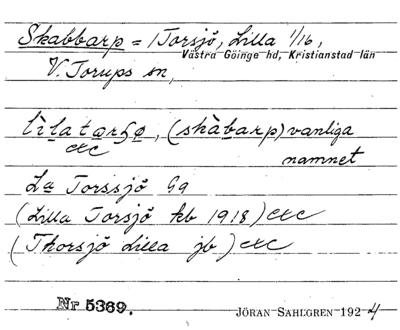 Skabbarp = /Torsjö, Lilla 1/16,
Västra Göinge hd, Kristianstad län
V. Torups sn,
(skàbarp) vanliga
etc namnet
La Torssjö Gg
(Lilla Torsjö kb 1918) etc
(Thorsjö Lilla jb) etc
Nr 5369. JÖRAN SAHLGREN 192 4